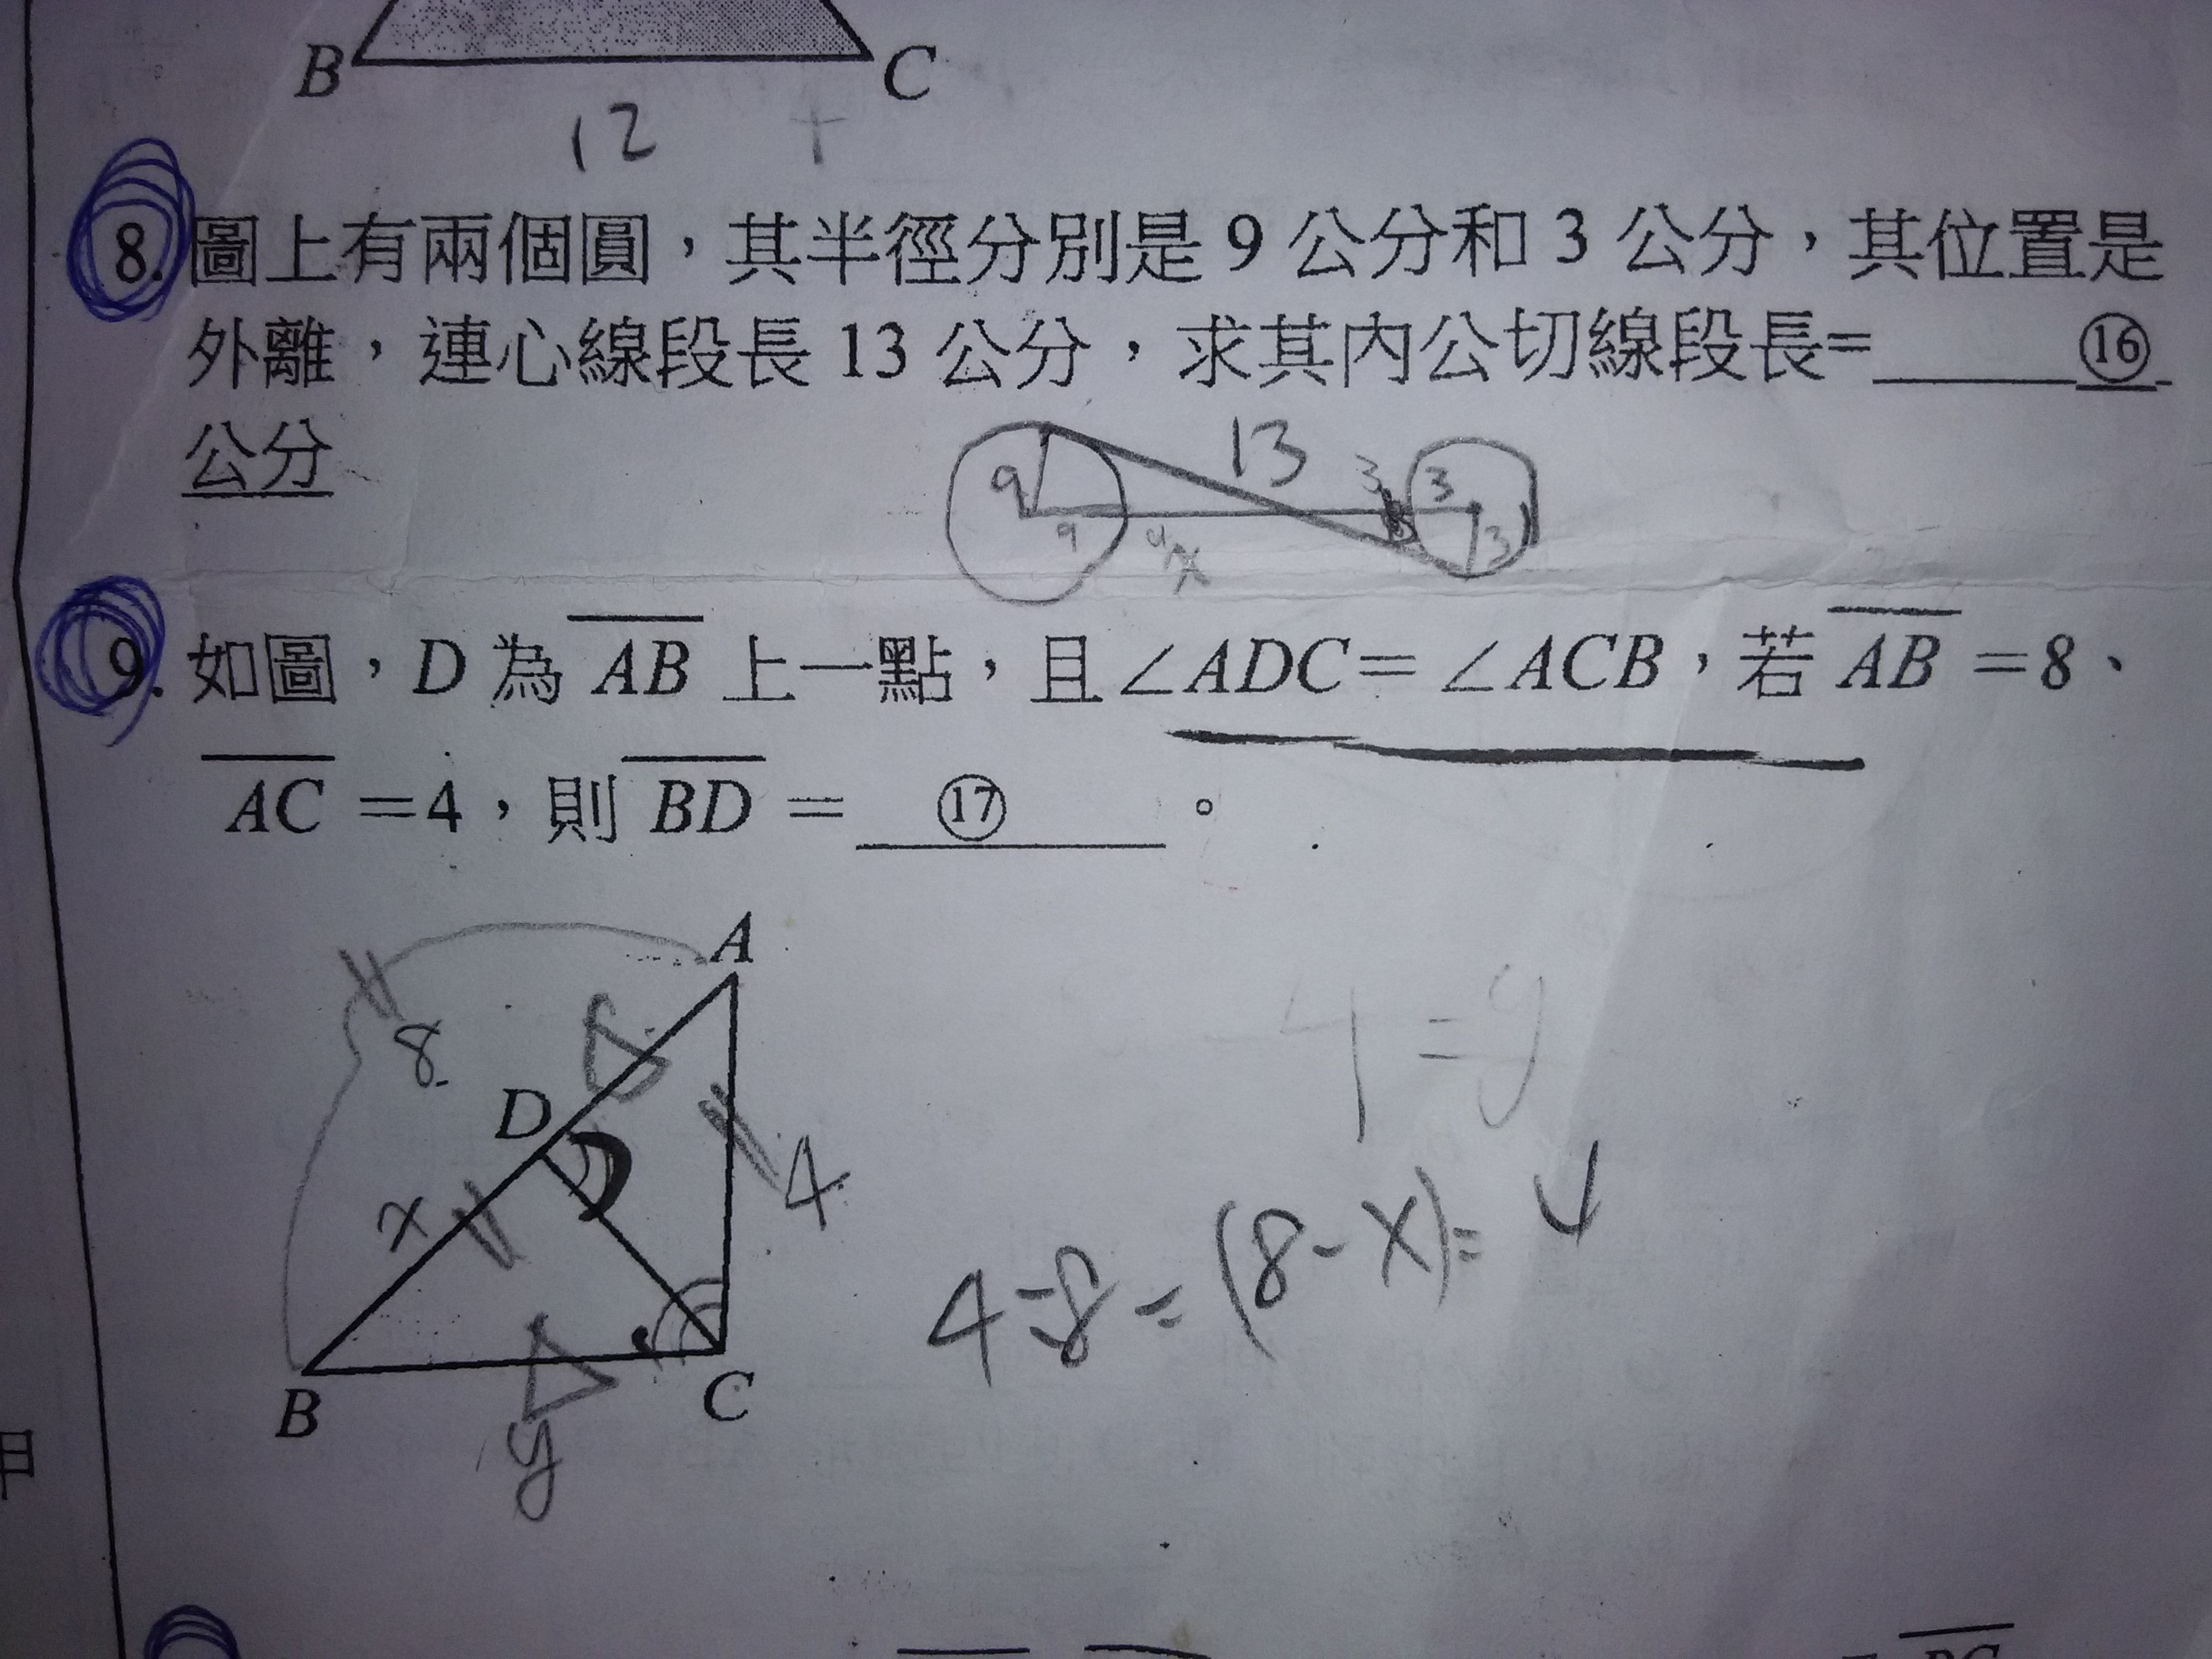 B C
12
8. 圖上有兩個圓，其半徑分別是 9 公分和 3 公分，其位置是
外離，連心線段長 13 公分，求其內公切線段長=______⑯
公分
13
9 3 3
9 x 3
9. 如圖，D 為 AB 上一點，且∠ADC=∠ACB，若 AB =8、
AC =4，則 BD = ⑰ 。
A
4=y
8
D
4
x
4=8=(8-x)=4
B C
y
甲